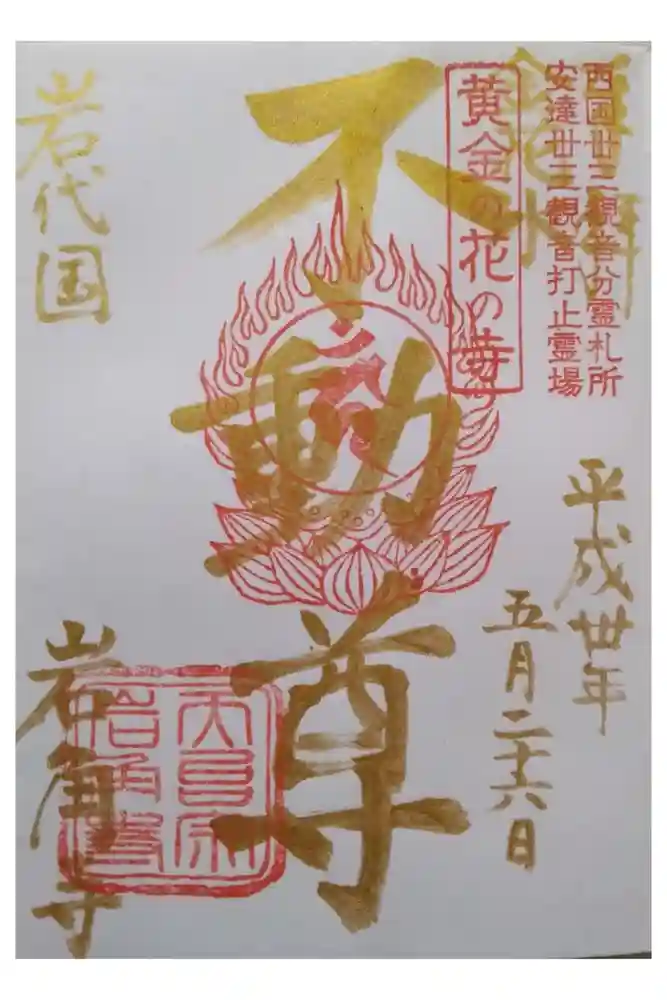 西国卅三観音分霊札所
安達卅三観音打止霊場
黄金の花の寺
平成卅年
五月二十六日
不動尊
岩代国
岩角寺
天台宗